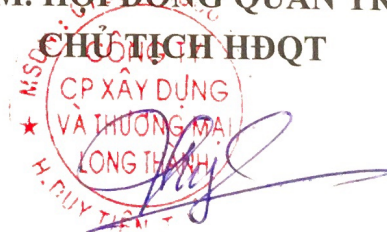 M. HỘI ĐỒNG QUẢN TR
CHỦ TỊCH HĐQT
MSD
CÔNG T
CP XÂY DỰNG
VÀ THƯƠNG MẠI
LONG THÀNH
H. DUY TIÊN T